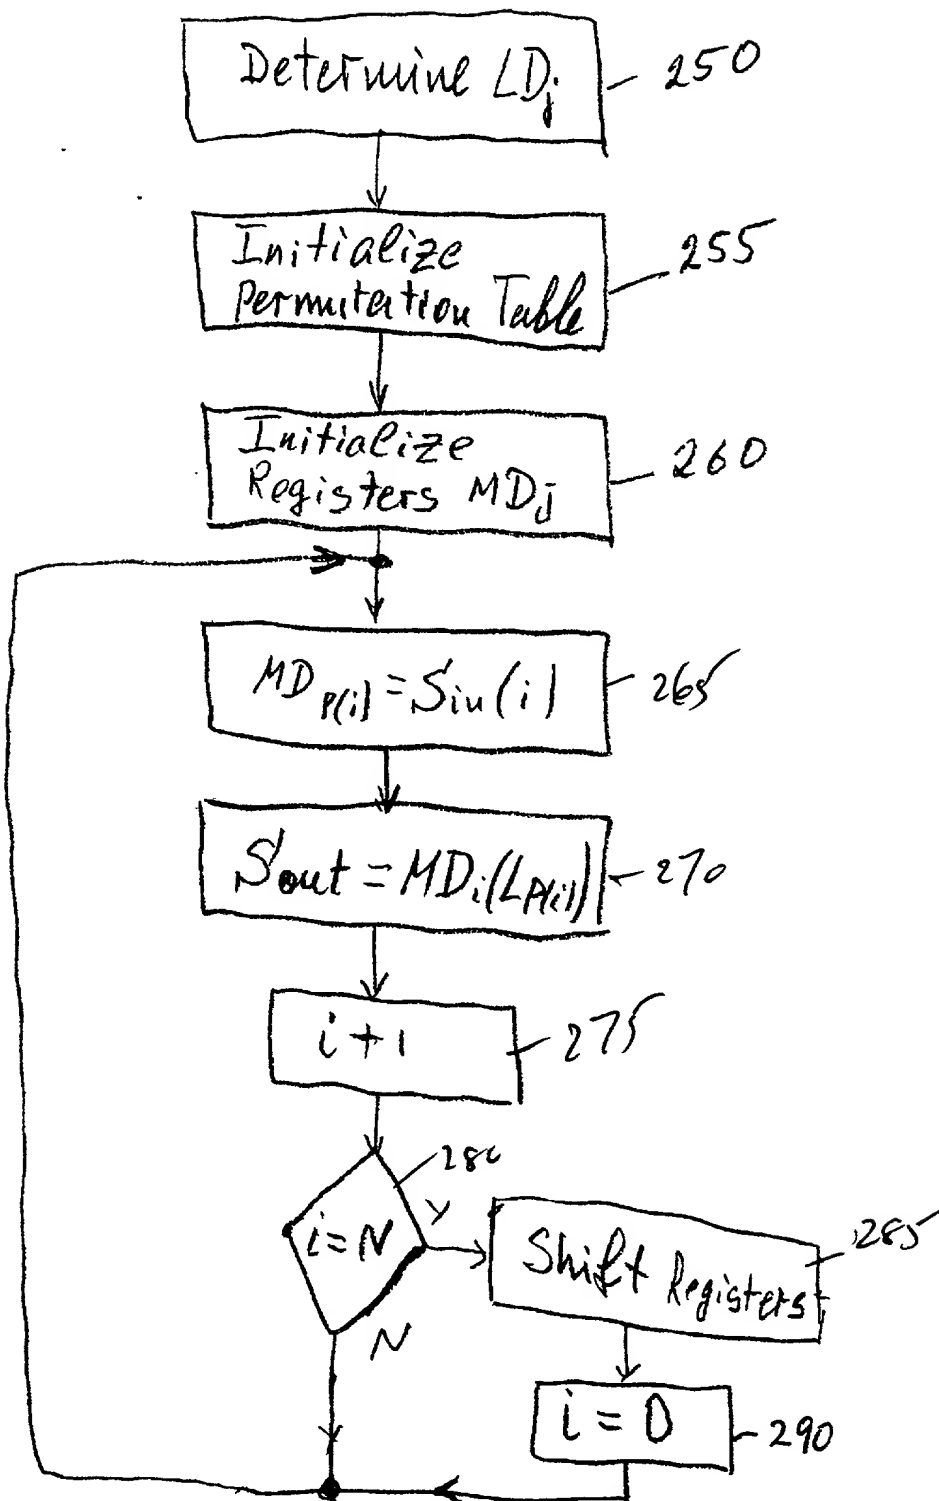 Determine LDj
250
Initialize
Permutation Table
255
Initialize
Registers MDj
260
MD P(i) = Sin(i)
265
Sout = MDi(LP(i))
270
i+1
275
i=N
280
Y
N
Shift Registers
285
i = 0
290